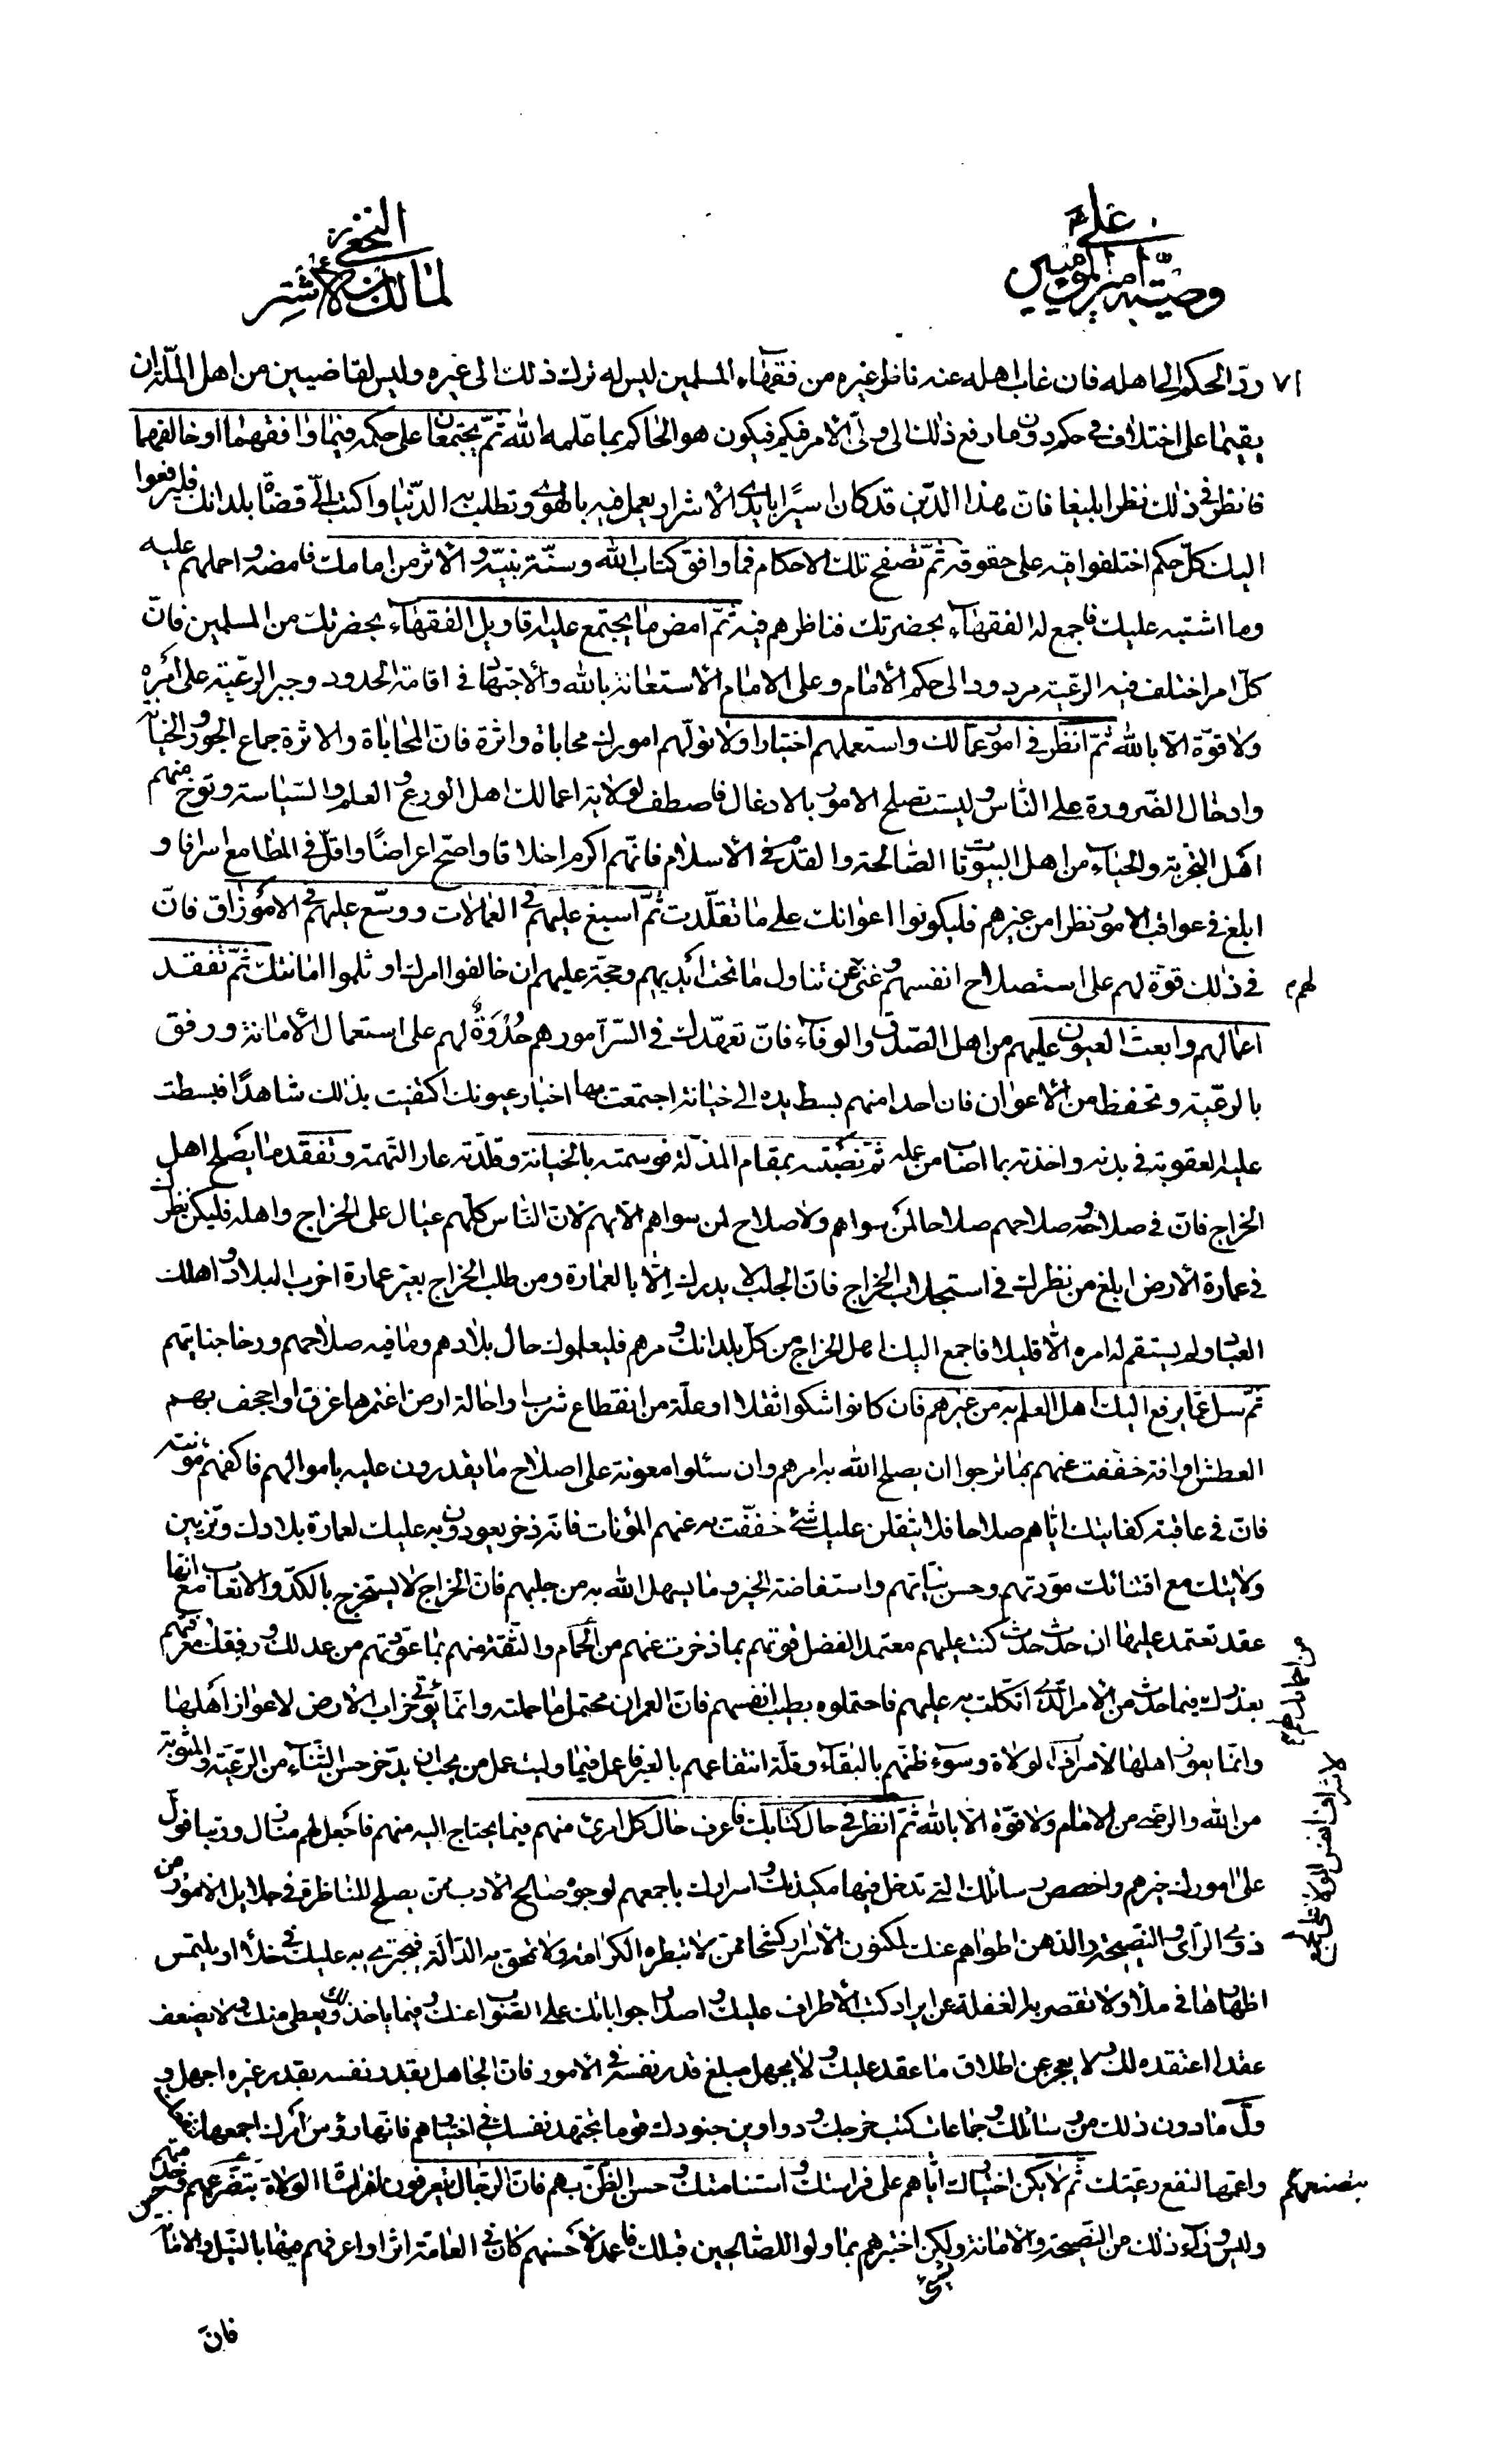 وصيّة امير المؤمنين علىّ ع
لمالك بن الاشتر النخعى رض
٧١ ردّ الحكم الى اهله فان غاب اهله عنه ناظر غيره من فقهاء المسلمين ليس له ترك ذلك الى غيره وليس لقاضيين من اهل الملّة ان
يقيما على اختلاف فى حكم دون ما رفع ذلك الى ولىّ الامر فيكم فيكون هو الحاكم بما علّمه الله ثمّ يجتمعان على حكمه فيما وافقهما او خالفهما
فانظر فى ذلك نظرا بليغا فانّ هذا الدّين قد كان اسيرًا بايدى الاشرار يعمل فيه بالهوى وتطلب به الدّنيا واكتب الى قضاة بلدانك فليرفعوا
اليك كلّ حكم اختلفوا فيه على حقوقه ثمّ تصفّح تلك الاحكام فما وافق كتاب الله وسنّة نبيّه والاثر من امامك فامضه واحملهم عليه
وما اشتبه عليك فاجمع له الفقهاء بحضرتك فناظرهم فيه ثمّ امض ما يجتمع عليه اقاويل الفقهاء بحضرتك من المسلمين فانّ
كلّ امر اختلف فيه الرعيّة مردود الى حكم الامام وعلى الامام الاستعانة بالله والاجتهاد فى اقامة الحدود وجبر الرعيّة على امره
ولا قوّة الّا بالله ثمّ انظر فى امور عمّالك واستعملهم اختبارا ولا تولّهم امورك محاباة واثرة فانّ المحاباة والاثرة جماع الجور والخيانة
وادخال الضّرورة على النّاس وليست تصلح الامور بالادغال فاصطف لولاية اعمالك اهل الورع والعلم والسّياسة وتوخّ منهم
اهل التجربة والحياء من اهل البيوتات الصّالحة والقدم فى الاسلام فانّهم اكرم اخلاقا واصحّ اعراضًا واقلّ فى المطامع اسرافا و
ابلغ فى عواقب الامور نظرا من غيرهم فليكونوا اعوانك على ما تقلّدت ثمّ اسبغ عليهم فى العمالات ووسّع عليهم فى الارزاق فانّ
فى ذلك قوّة لهم على استصلاح انفسهم وغنى عن تناول ما تحت ايديهم وحجّة عليهم ان خالفوا امرك او ثلموا امانتك ثمّ تفقد
لهم
اعمالهم وابعث العيون عليهم من اهل الصّدق والوفاء فانّ تعهّدك فى السّرّ امورهم حُدْوَةٌ لهم على استعمال الامانة ورفق
بالرعيّة وتحفظ من الاعوان فان احدا منهم بسط يده الى خيانة اجتمعت بها اخبار عيونك اكتفيت بذلك شاهدًا فبسطت
عليه العقوبة فى بدنه واخذته بما اصاب من عمله ثمّ نصبته بمقام المذلّة فوسمته بالخيانة وقلّدته عار التّهمة وتفقد ما يصلح اهل
الخراج فانّ فى صلاحه وصلاحهم صلاحا لمن سواهم ولا صلاح لمن سواهم الّا بهم لانّ النّاس كلّهم عيال على الخراج واهله فليكن نظرك
فى عمارة الارض ابلغ من نظرك فى استجلاب الخراج فانّ الجلب لا يدرك الّا بالعمارة ومن طلب الخراج بغير عمارة اخرب البلاد واهلك
العباد ولم يستقم له امره الّا قليلا فاجمع اليك اهل الخراج من كلّ بلدانك ومرهم فليعلموك حال بلادهم وما فيه صلاحهم ورخا جبايتهم
ثمّ سل عمّا يرفع اليك اهل العلم به من غيرهم فان كانوا شكوا ثقلا او علّة من انقطاع شرب او احالة ارض اغتمرها غرق او اجحف بهم
العطش او افة خففت عنهم بما ترجوا ان يصلح الله به امرهم وان سئلوا معونة على اصلاح ما يقدرون عليه باموالهم فاكفهم مؤنته
فانّ فى عاقبة كفايتك ايّاهم صلاحا فلا يثقلن عليك شئ خففت به عنهم المؤنات فانّه ذخر يعودون به عليك لعمارة بلادك وتزيين
ولايتك مع اقتنائك مودّتهم وحسن نيّاتهم واستفاضة الخير وما يسهل الله به من جلبهم فانّ الخراج لا يستخرج بالكدّ والاتعاب مع انها
عقد تعتمد عليها ان حدث حدث كنت عليهم معتمدا لفضل قوتهم بما ذخرت عنهم من الجمام والثّقة منهم بما عوّدتهم من عدلك ورفقك ومعرفتهم
بعذرك فيما حدث من الامر الّذى اتّكلت به عليهم فاحتملوه بطيب انفسهم فانّ العمران محتمل ما حملته وانّما يؤتى خراب الارض لاعواز اهلها
من احالهم
وانّما يعوز اهلها لاسراف الولاة وسوء ظنّهم بالبقاء وقلّة انتفاعهم بالعبر فاعمل فيما وليت عمل من يحبّ ان يدّخر حسن الثّناء من الرّعيّة والمثوبة
لاشراف انفس الولاة على الجمع
من الله والرضى من الامام ولا قوّة الّا بالله ثمّ انظر فى حال كتّابك فاعرف حال كل امرئ منهم فيما يحتاج اليه منهم فاجعل لهم منازل ورتبا فولّ
على امورك خيرهم واخصص رسائلك التى تدخل فيها مكيدتك واسرارك باجمعهم لوجوه صالح الادب ممّن يصلح للمناظرة فى جلايل الامور من
ذوى الرّأى والنّصيحة والذهن اطواهم عنك لمكنون الاسرار كشحا ممّن لا تبطره الكرامة ولا تمحق به الدّالّة فيجترى بها عليك فى خلاء او يلتمس
اظهارها فى ملاء ولا تقصر به الغفلة عن ايراد كتب الاطراف عليك واصدار جواباتك على الصّواب عنك وفيما ياخذ لك ويعطى منك ولا يضعف
عقدا اعتقده لك ولا يعجز عن اطلاق ما عقد عليك ولا يجهل مبلغ قدر نفسه فى الامور فانّ الجاهل بقدر نفسه بقدر غيره اجهل و
ولّ ما دون ذلك من رسائلك وجماعات كتب خرجك ودواوين جنودك قوما تجتهد نفسك فى اختيارهم فانّها رؤس امرك اجمعها لنفعك
واعمّها لنفع رعيّتك ثم لا يكن اختيارك ايّاهم على فراستك واستنامتك وحسن الظّنّ بهم فانّ الرّجال يتعرفون لفراسات الولاة بتضرّعهم وحسن خدمتهم
بتصنعهم
وليس وراء ذلك من النّصيحة والامانة ولكن اختبرهم بما ولوا للصّالحين قبلك فاعمد لاحسنهم كان فى العامّة اثرا واعرفهم فيها بالنّبل والامانة
شئ
فانّ